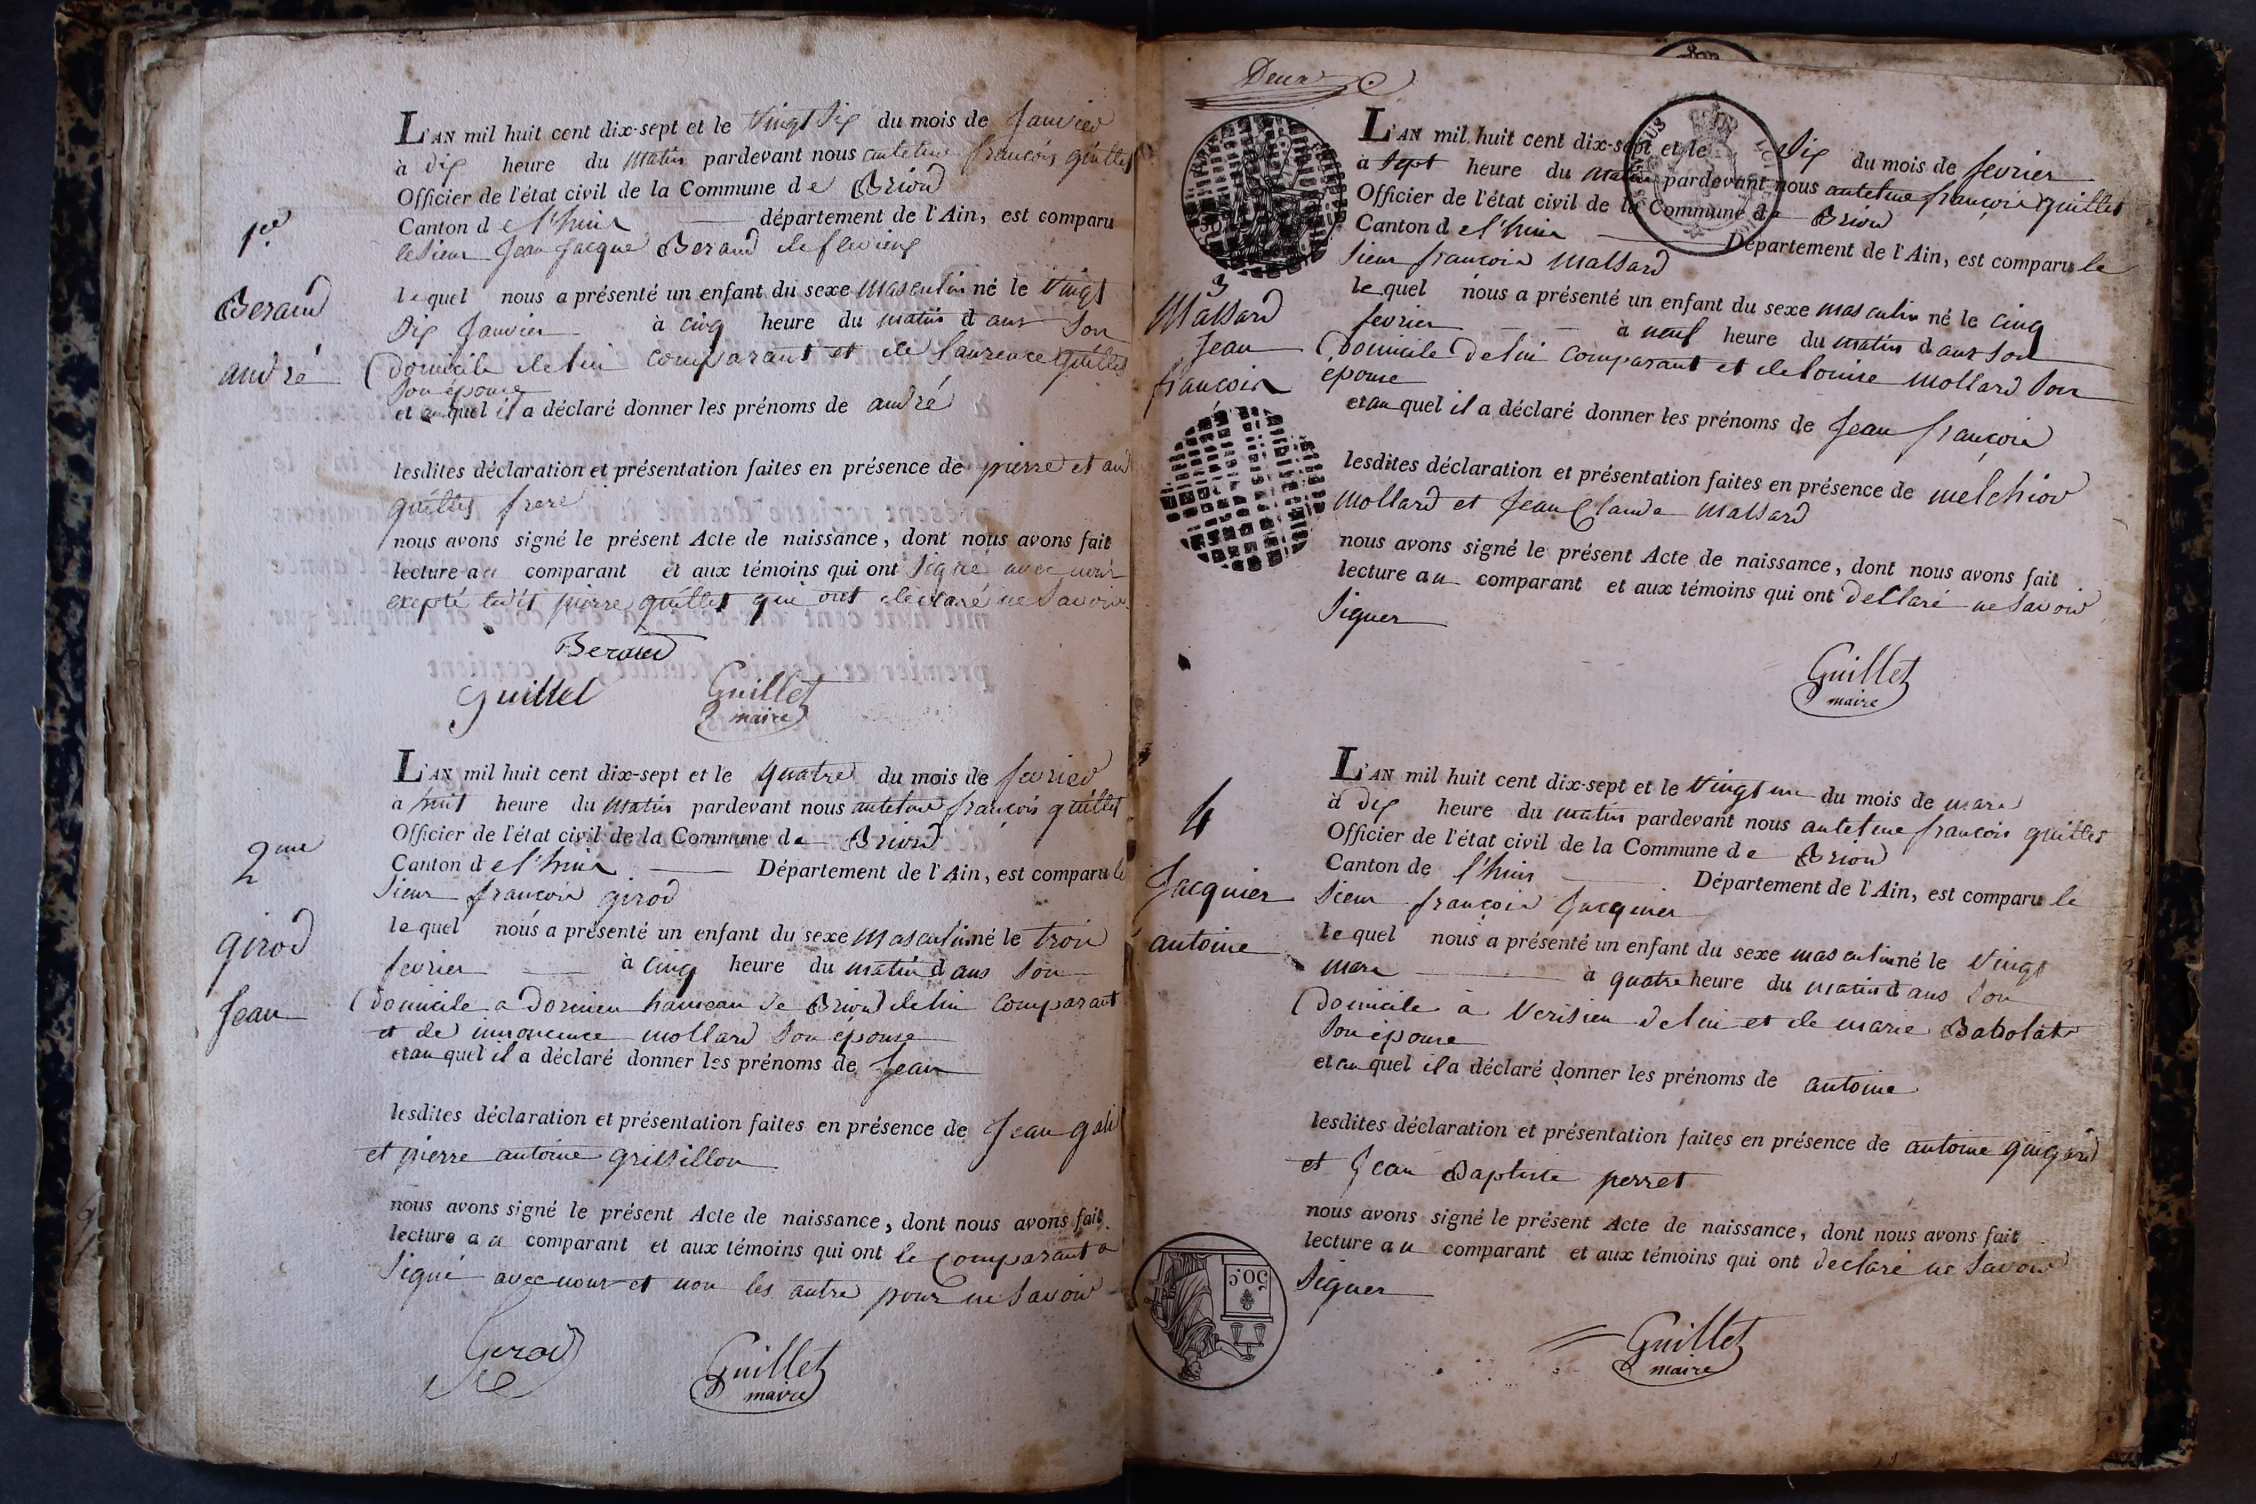 L'AN mil huit cent dix-sept et le vingt dix du mois de Janvier
à dix heure du matin pardevant nous antelme françois guillet
Officier de l'état civil de la Commune de Briord
Canton de l'huis département de l'Ain, est comparu
le Sieur Jean Jacque Beraud de
le quel nous a présenté un enfant du sexe masculin né le vingt
dix Janvier à cinq heure du matin dans Son
Domicile de lui comparant et de laurence guillet
Son épouse
et auquel il a déclaré donner les prénoms de andré
lesdites déclaration et présentation faites en présence de pierre et an
guillet frere
nous avons signé le présent Acte de naissance, dont nous avons fait
lecture au comparant et aux témoins qui ont Signé avec nous
exepté pierre guillet qui ont declaré ne Savoir
Beraud
Guillet
Guillet
maire
1er
Beraud
andré
L'AN mil huit cent dix-sept et le quatre du mois de fevrier
a huit heure du matin pardevant nous antelme françois guillet
Officier de l'état civil de la Commune de Briord
Canton de l'huis Département de l'Ain, est comparu le
Sieur françois girod
le quel nous a présenté un enfant du sexe masculin né le trois
fevrier à cinq heure du matin dans Son
Domicile a Dornieu hameau de Briord de lui comparant
et de innocence mollard Son épouse
et au quel il a déclaré donner les prénoms de Jean
lesdites déclaration et présentation faites en présence de Jean
et pierre antoine grissillon
nous avons signé le présent Acte de naissance, dont nous avons fait
lecture au comparant et aux témoins qui ont le Comparant a
Signé avec nous et non les autre pour ne Savoir
Gerod
Guillet
maire
2me
girod
Jean
Deux
L'AN mil huit cent dix-sept et le dix du mois de fevrier
a Sept heure du matin pardevant nous antelme françois guillet
Officier de l'état civil de la Commune de Briord
Canton de l'huis Département de l'Ain, est comparu le
Sieur françois Massard
le quel nous a présenté un enfant du sexe masculin né le cinq
fevrier à neuf heure du matin dans Son
Domicile de lui comparant et de louise mollard Son
epouse
et au quel il a déclaré donner les prénoms de Jean françois
lesdites déclaration et présentation faites en présence de melchior
mollard et Jean Claude Massard
nous avons signé le présent Acte de naissance, dont nous avons fait
lecture au comparant et aux témoins qui ont declaré ne Savoir
Signer
Guillet
maire
3
Massard
Jean
françois
L'AN mil huit cent dix-sept et le vingt un du mois de mars
à dix heure du matin pardevant nous antelme françois guillet
Officier de l'état civil de la Commune de Briord
Canton de l'huis Département de l'Ain, est comparu le
Sieur françois Jacquier
le quel nous a présenté un enfant du sexe masculin né le vingt
mars à quatre heure du matin dans Son
Domicile à Verisieu de lui et de marie Babolat
Son epouse
et au quel il a déclaré donner les prénoms de antoine
lesdites déclaration et présentation faites en présence de antoine guigard
et Jean Baptiste perret
nous avons signé le présent Acte de naissance, dont nous avons fait
lecture au comparant et aux témoins qui ont declaré ne Savoir
Signer
Guillet
maire
4
Jacquier
antoine
50.c